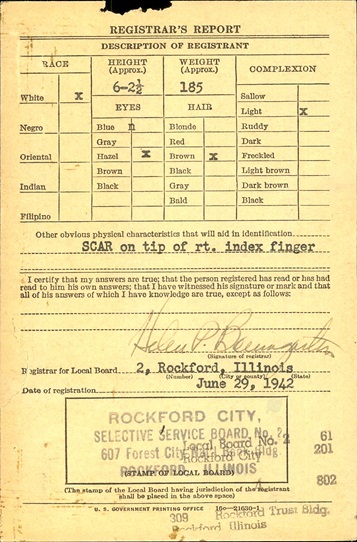 REGISTRAR'S REPORT
DESCRIPTION OF REGISTRANT
RACE
HEIGHT (Approx.)
WEIGHT (Approx.)
COMPLEXION
6-2½
185
White x
EYES
HAIR
Sallow
Light x
Negro
Blue
Blonde
Ruddy
Gray
Red
Dark
Oriental
Hazel x
Brown x
Freckled
Brown
Black
Light brown
Indian
Black
Gray
Dark brown
Bald
Black
Filipino
Other obvious physical characteristics that will aid in identification
SCAR on tip of rt. index finger
I certify that my answers are true; that the person registered has read or has had
read to him his own answers; that I have witnessed his signature or mark and that
all of his answers of which I have knowledge are true, except as follows:
Helen P. Baumgarten
(Signature of registrar)
Registrar for Local Board 2, Rockford, Illinois
(Number) (City or county) (State)
Date of registration June 29, 1942
ROCKFORD CITY,
SELECTIVE SERVICE BOARD No. 2
Local Board No. 2 61
607 Forest City Nat'l Bank Bldg.
Rockford City 201
ROCKFORD, ILLINOIS
(STAMP OF LOCAL BOARD)
802
(The stamp of the Local Board having jurisdiction of the registrant
shall be placed in the above space)
U. S. GOVERNMENT PRINTING OFFICE 16—21630-1
309 Rockford Trust Bldg.
Rockford Illinois